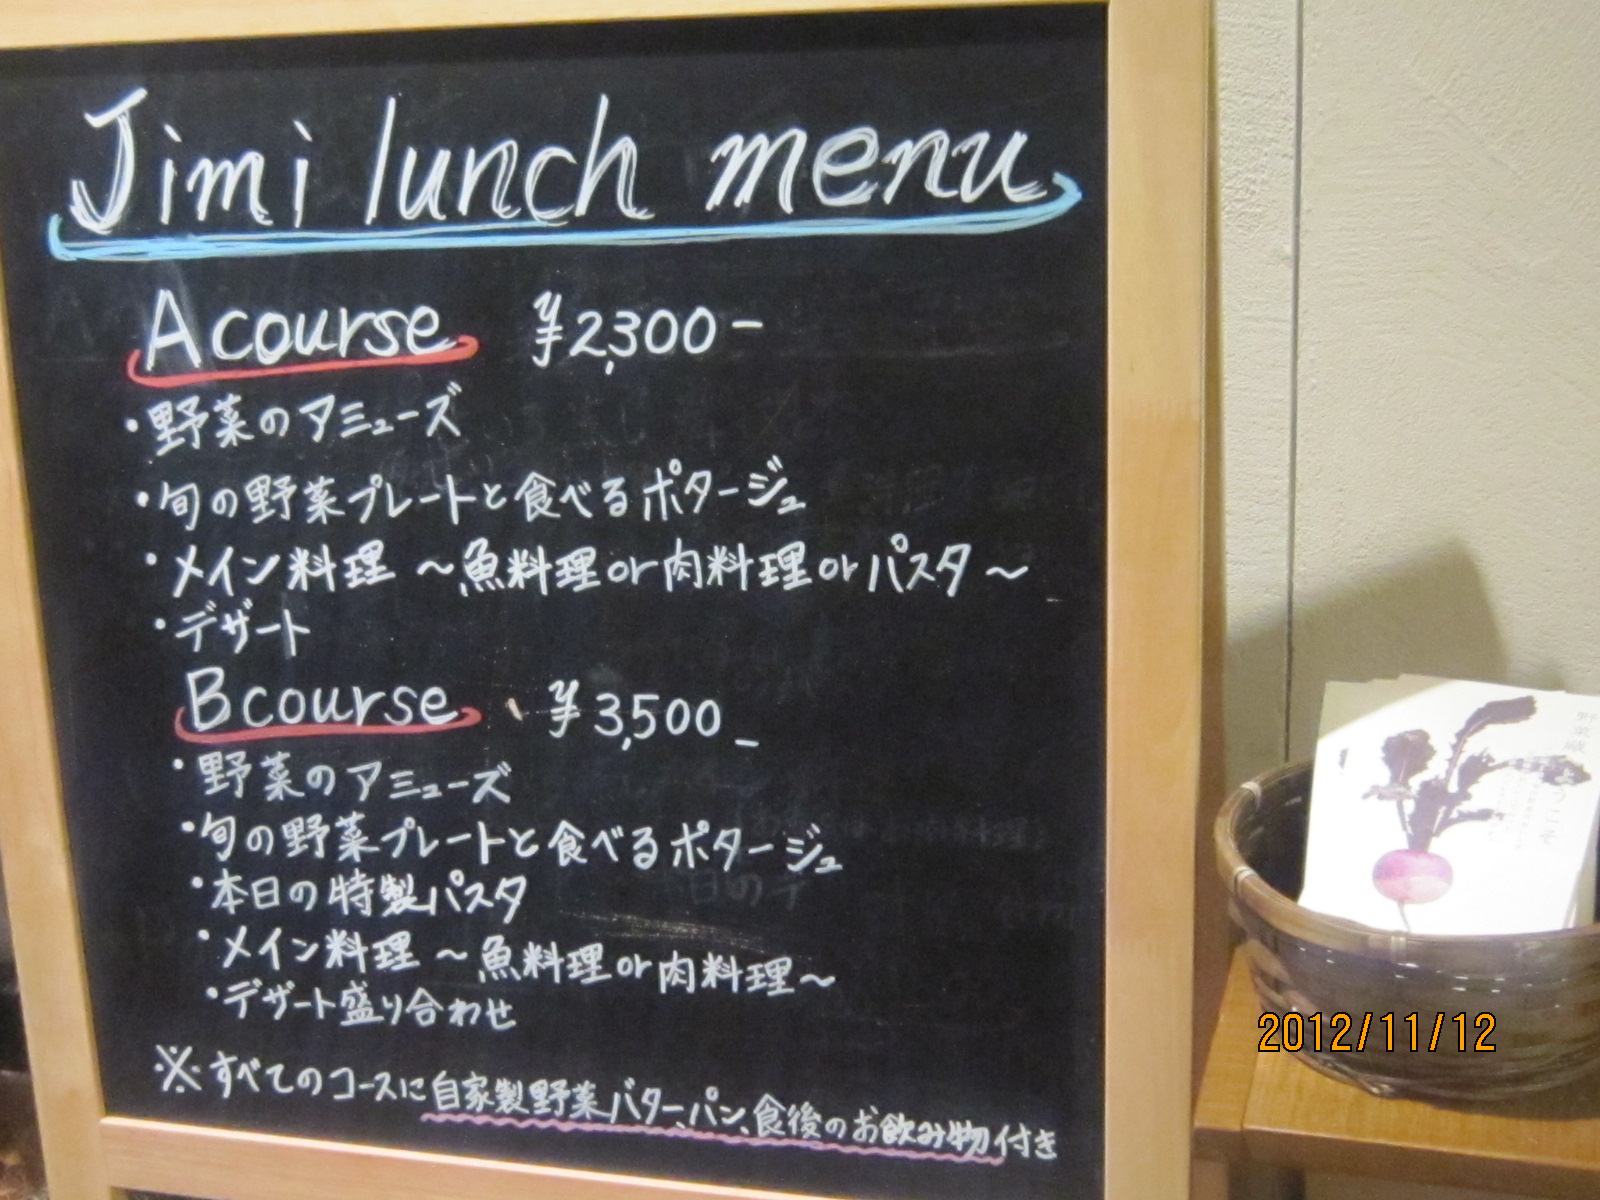 Jimi lunch menu
A course ¥2,300-
・野菜のアミューズ
・旬の野菜プレートと食べるポタージュ
・メイン料理 〜魚料理or肉料理orパスタ〜
・デザート
B course ¥3,500-
・野菜のアミューズ
・旬の野菜プレートと食べるポタージュ
・本日の特製パスタ
・メイン料理 〜魚料理or肉料理〜
・デザート盛り合わせ
※すべてのコースに自家製野菜バター、パン、食後のお飲み物付き
2012/11/12